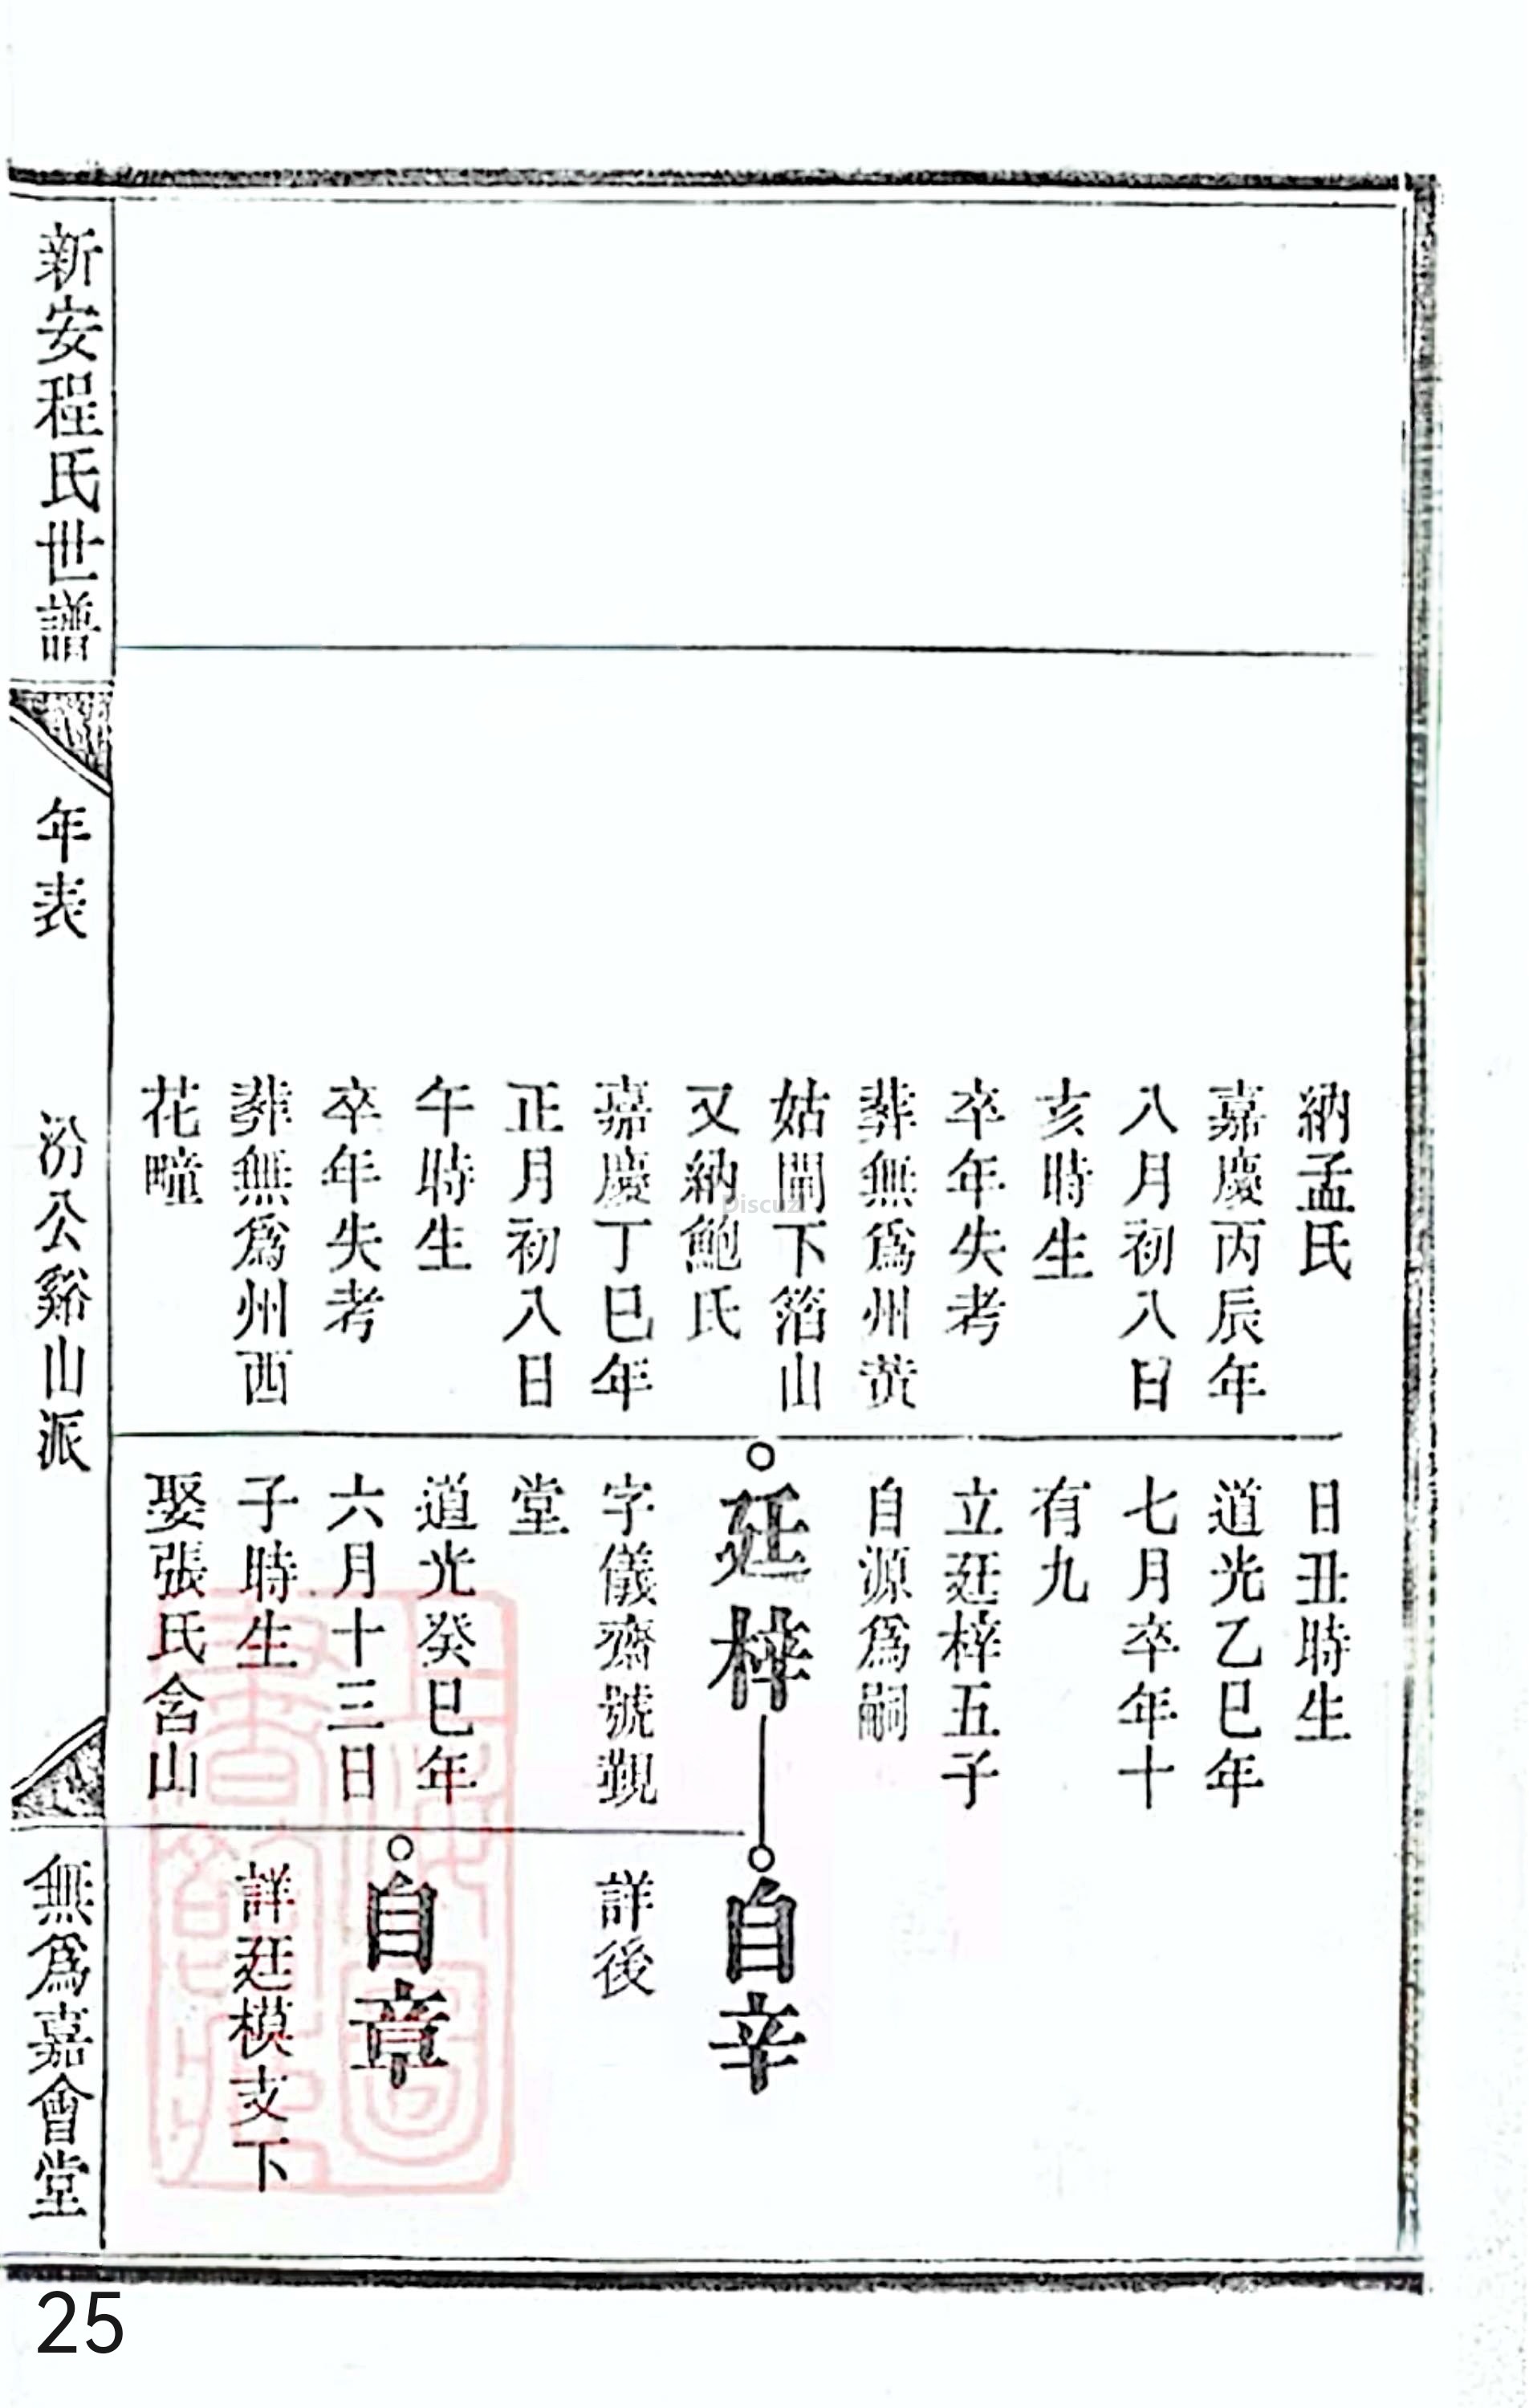 納孟氏
嘉慶丙辰年
八月初八日
亥時生
卒年失考
葬無爲州黄
姑閘下箔山
又納鮑氏
嘉慶丁巳年
正月初八日
午時生
卒年失考
葬無爲州西
花疃
日丑時生
道光乙巳年
七月卒年十
有九
立廷梓五子
自源爲嗣
廷梓
字儀齋號觀
堂
道光癸巳年
六月十三日
子時生
娶張氏含山
自辛
詳後
自章
詳廷模支下
新安程氏世譜
年表
汾公谿山派
無爲嘉會堂
Discuz!
25